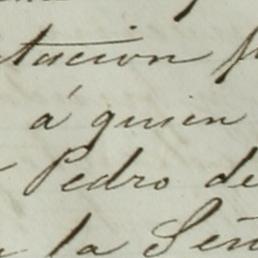 tacion
á quien
Pedro de
la Señ